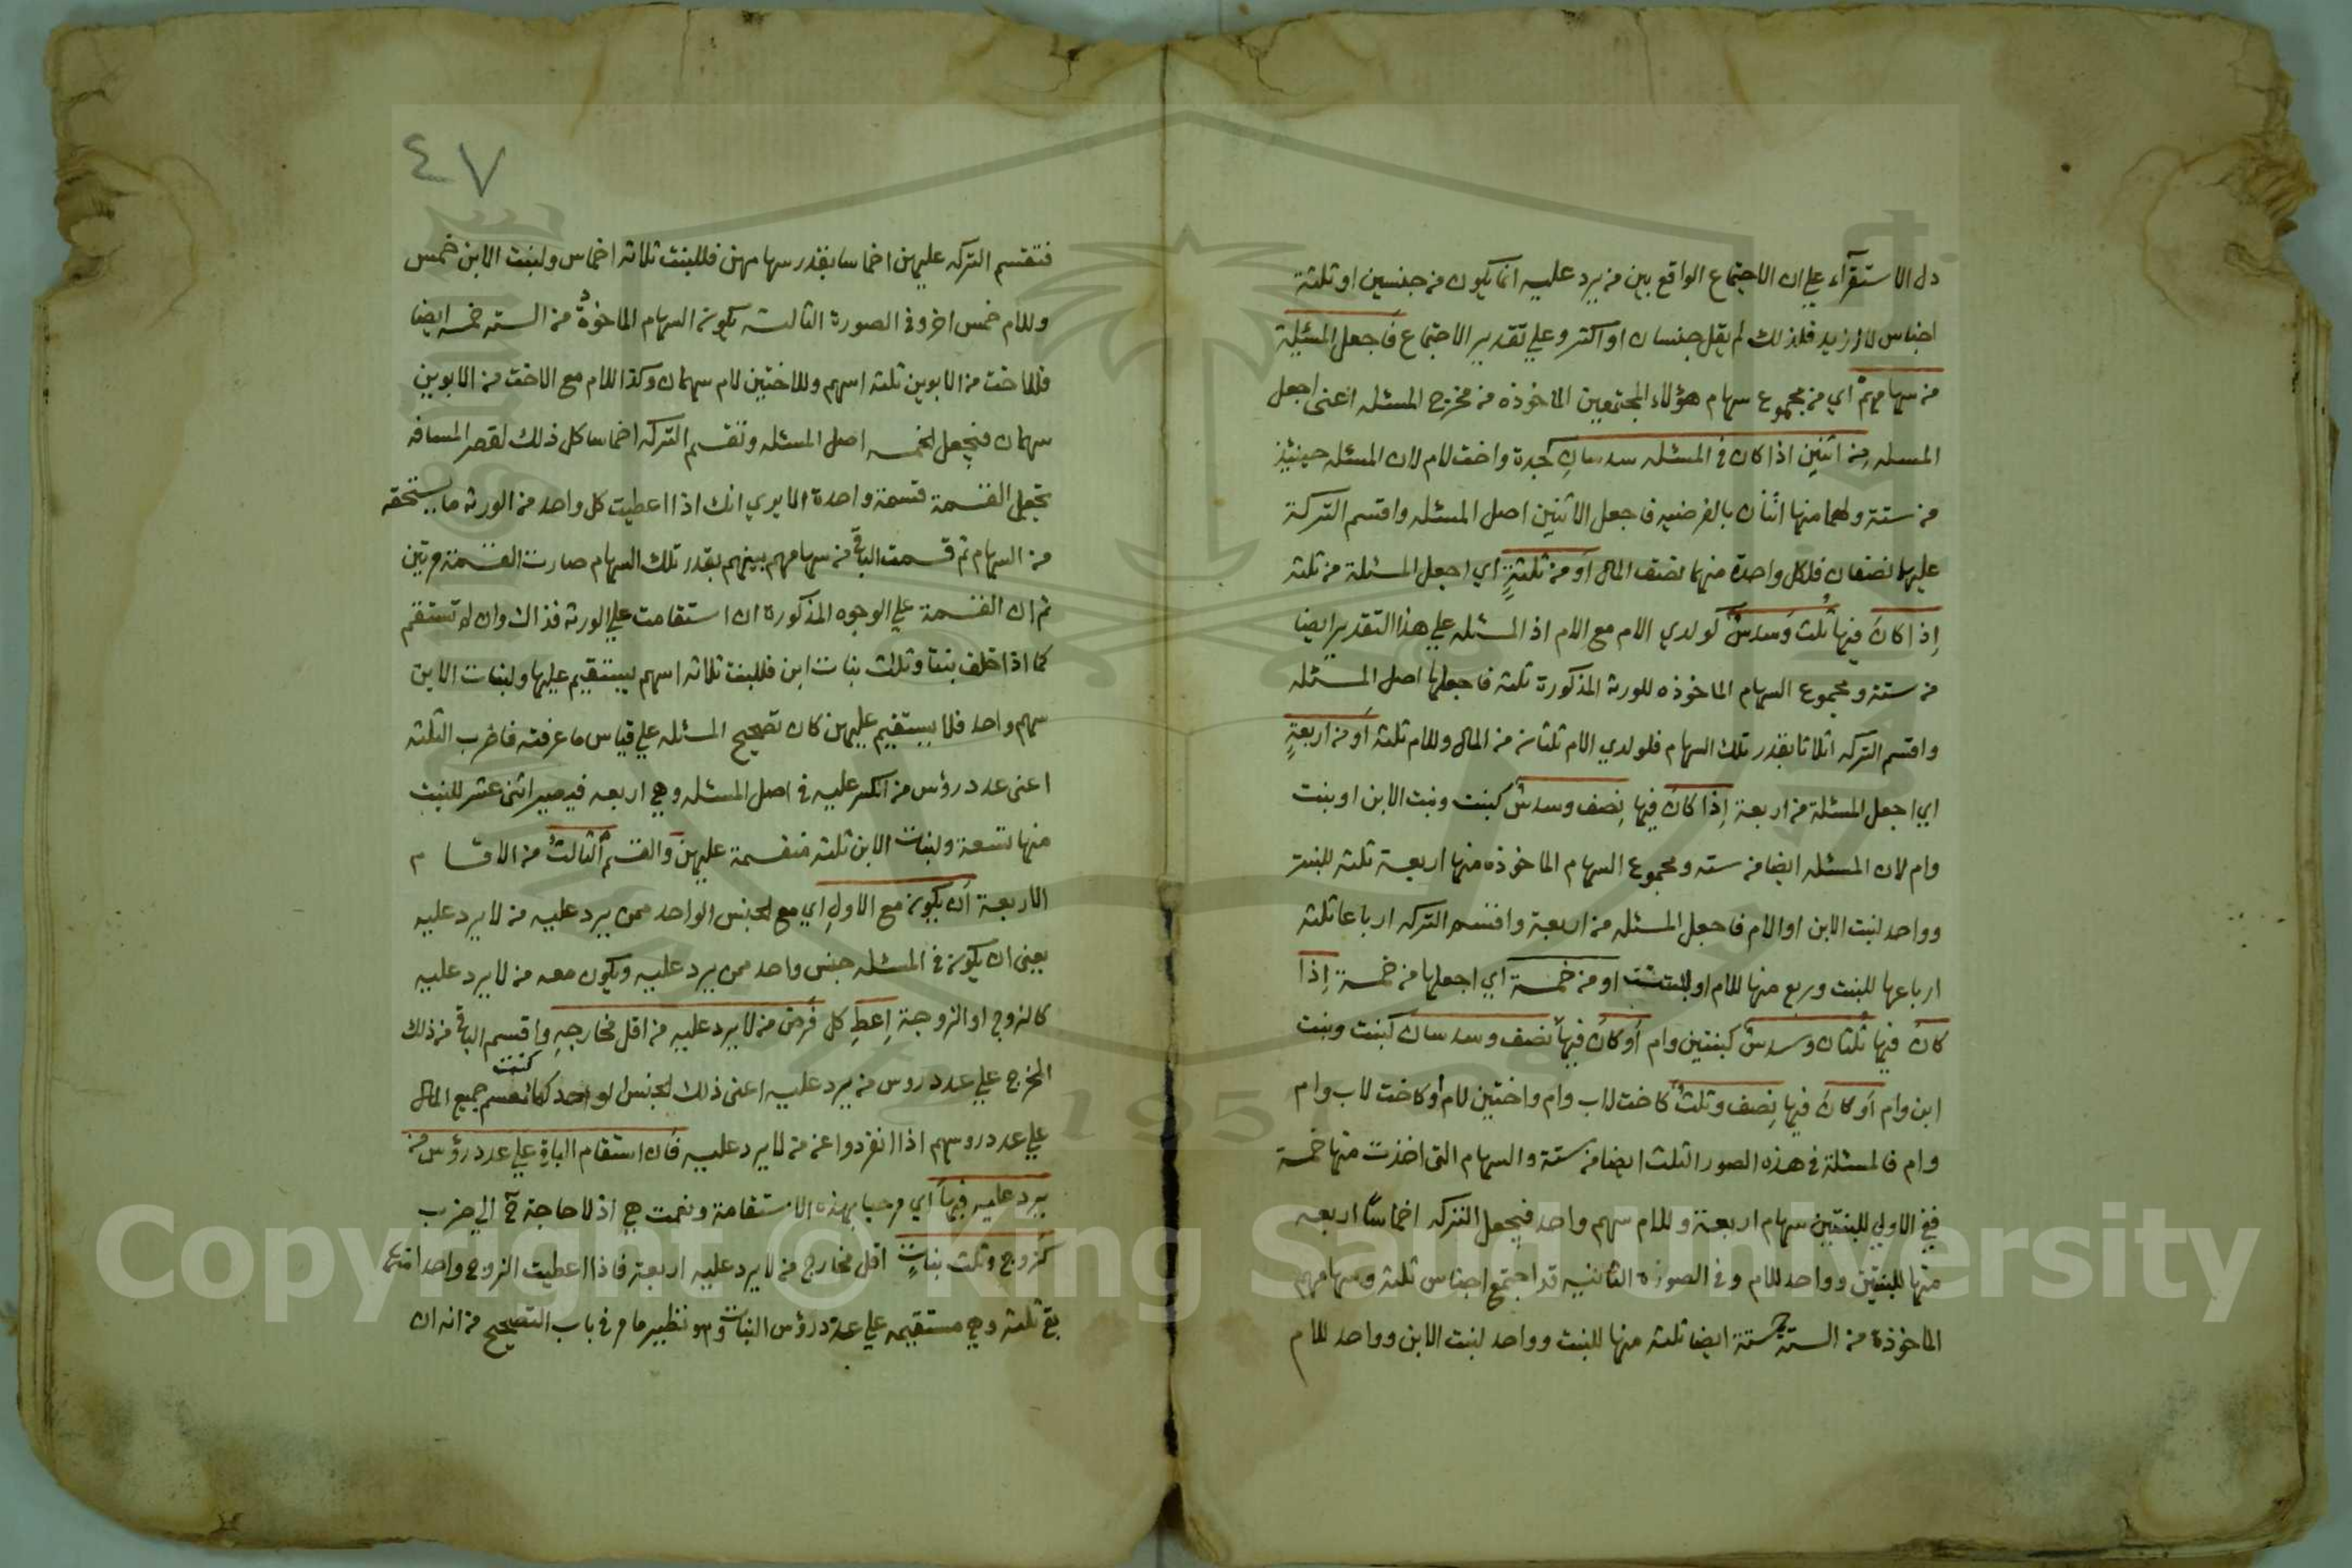 دل الاستقرآء علي ان الاجتماع الواقع بين من يرد عليه انما يكون من جنسين او ثلثة
اجناس لا ازيد فلذلك لم يقل جنسان او اكثر وعلي تقدير الاجتماع فاجعل المسئلة
من سهامهم اي من مجموع سهام هؤلاء المجتمعين الماخوذه من مخرج المسئله اعنى اجعل
المسله من اثنين اذا كان في المسئله سدسان كجدة واخت لام لان المسئله حينئذ
من ستة ولهما منها اثنان بالفرضيه فاجعل الاثنين اصل المسئله واقتسم التركة
عليهما نصفان فلكل واحدة منهما نصف المال او من ثلثةٍ اي اجعل المسئلة من ثلثه
اِذا كان فيها ثُلث وَسدسٌ كولدي الام مع الام اذ المسئله علي هذا التقدير ايضا
من ستة ومجموع السهام الماخوذه للورثه المذكورة ثلثه فاجعلها اصل المسئله
واقتسم التركه اثلاثا بقدر تلك السهام فلولدي الام ثلثان من المال وللام ثلثه اَو من اربعةٍ
اي اجعل المسئلة من اربعة اِذا كان فيها نِصف وسدسٌ كبنت وبنت الابن او بنت
وام لان المسئله ايضا من سته ومجموع السهام الماخوذه منها اربعة ثلثه للبنت
وواحد لبنت الابن او الام فاجعل المسئله من اربعة واقتسم التركه ارباعا ثلثه
ارباعها للبنت وربع منها للام او او من خمسة اي اجعلها من خمسة اِذا
كان فيها ثُلثان وسدسٌ كبنتين وام اَو كان فيها نصف وسدسان كبنت وبنت
ابن وام اَو كان فيها نِصف وثلثٌ كاخت لاب وام واختين لام او كاخت لاب وام
وام فالمسئلة في هذه الصور الثلث ايضا من ستة والسهام التى اخذت منها خمسة
ففي الاولي للبنتين سهام اربعة وللام سهم واحد فيجعل التركه اخماسًا اربعه
منها للبنتين وواحد للام وفي الصورة الثانيه قد اجتمع اجناس ثلثه وسهامهم
الماخوذة من الستة خمسة ايضا ثلثه منها للبنت وواحد لبنت الابن وواحد للام
٤٧
فتقتسم التركه عليهن اخماسا بقدر سهامهن فللبنت ثلاثه اخماس ولبنت الابن خمس
وللام خمس اخر وفي الصورة الثالثه يكون السهام الماخوذة من السته خمسه ايضا
فللاخت من الابوين ثلثه اسهم وللاختين لام سهمان وكذا للام مع الاخت من الابوين
سهمان فيجعل الخمسه اصل المسئله وتقسم التركه اخماسا كل ذلك لقصر المسافه
بجعل القسمة قسمة واحدة الا يري انك اذا اعطيت كل واحد من الورثه ما يستحقه
من السهام ثم قسمت الباقي من سهامهم بينهم بقدر تلك السهام صارت القسمة مرتين
ثم ان القسمة علي الوجوه المذكورة ان استقامت علي الورثه فذاك وان لم تستقم
كما اذا خلف بنتا وثلث بنات ابن فللبنت ثلاثه اسهم يستقيم عليها ولبنات الابن
سهم واحد فلا يستقيم عليهن كان تصحيح المسئله علي قياس ما عرفته فاضرب الثلثه
اعنى عدد رؤس من انكسر عليه في اصل المسئله وهي اربعه فيصير اثنى عشر للبنت
منها تسعة ولبنات الابن ثلثه منقسمة عليهن والقسم الثالثُ من الاقسام
الاربعة اَن يكون مع الاولِ اي مع الجنس الواحد ممن يرد عليه من لا يرد عليه
يعنى ان يكون في المسئله جنس واحد ممن يرد عليه ويكون معه من لا يرد عليه
كالزوج او الزوجة اِعطِ كل فَرض من لا يرد عليهِ من اقل مخارجهِ واقسم الباقي من ذلك
المخرج علي عدد روس من يرد عليه اعنى ذلك الجنس الواحد كما كنت تقسم جميع المال
علي عدد روسهم اذا انفردوا عن من لا يرد عليه فان استقام الباقي علي عدد رؤس من
يرد عليه فبها اي مرحبا بهذه الاستقامة ونعمت هي اذ لا حاجة ح الي ضرب
كزوج وثلث بناتٍ اقل مخارج من لا يرد عليه اربعة فاذا اعطيت الزوج واحدا منها
بقي ثلثه وهي مستقيمه علي عدد رؤس البنات وهو نظير ما مر في باب التصحيح من انه ان
Copyright © King Saud University
195